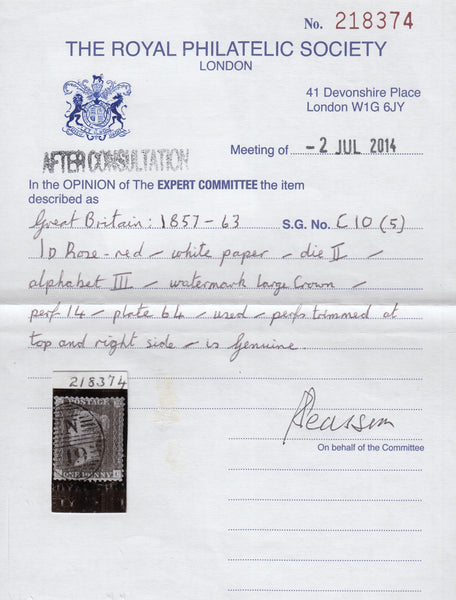 No. 218374
THE ROYAL PHILATELIC SOCIETY
LONDON
41 Devonshire Place
London W1G 6JY
AFTER CONSULTATION
Meeting of - 2 JUL 2014
In the OPINION of The EXPERT COMMITTEE the item
described as
Great Britain: 1857-63 S.G. No. C10 (5)
1D Rose-red - white paper - die II -
alphabet III - watermark large Crown -
perf 14 - plate 64 - used - perfs trimmed at
top and right side - is Genuine
218374
POSTAGE
N
19
ONE PENNY
On behalf of the Committee